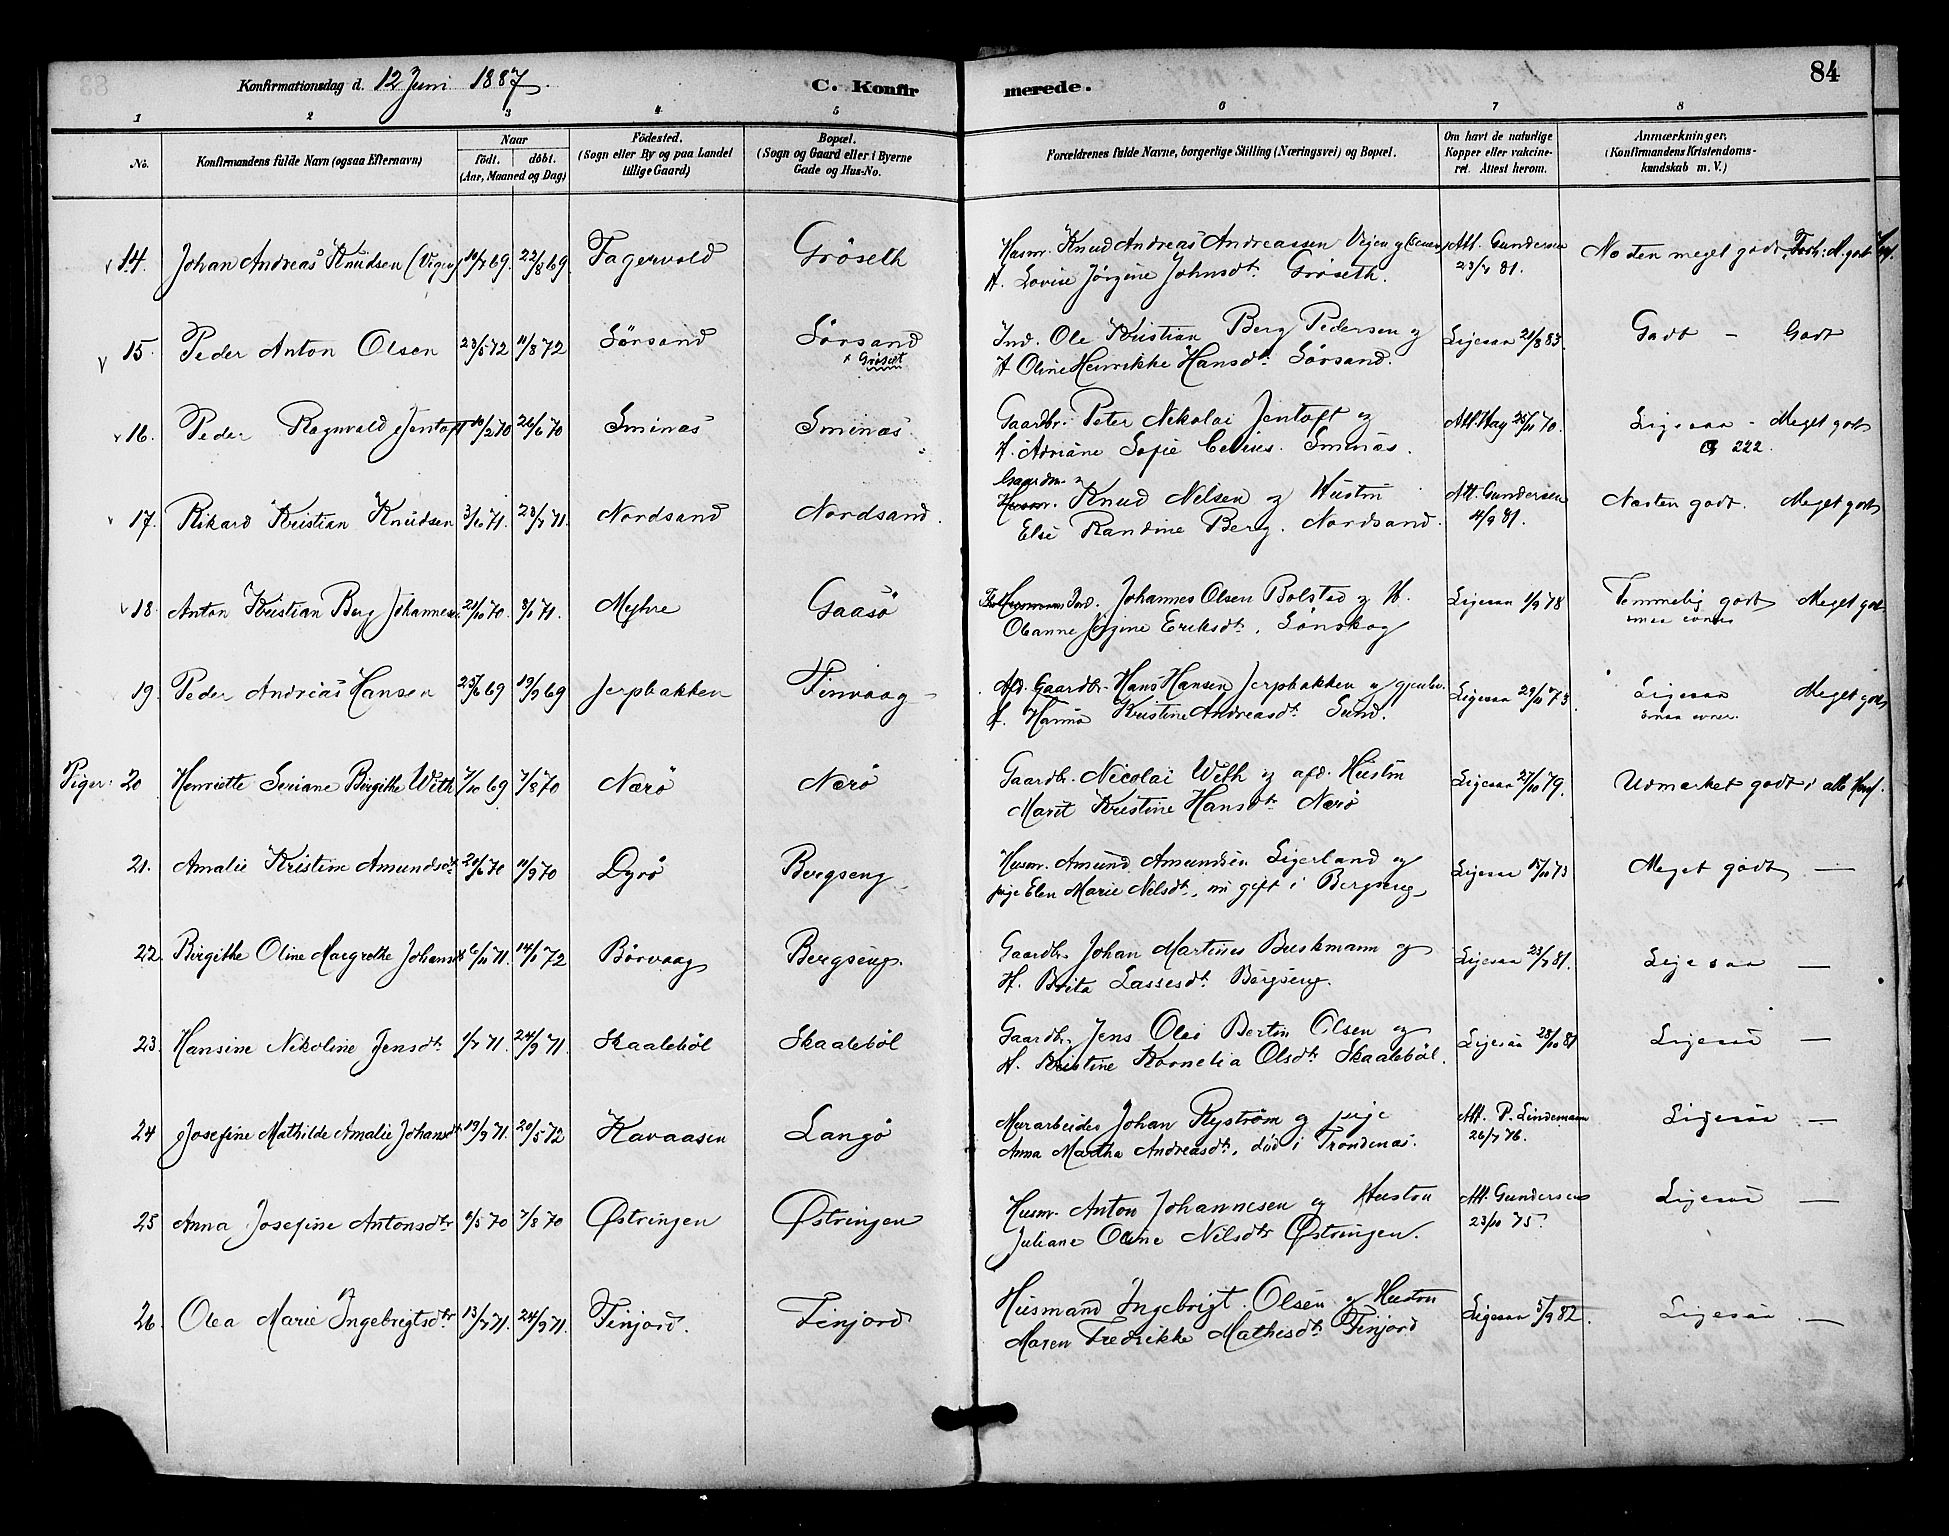 Konfirmationsdag d. 12 Juni 1887.
C. Konfirmerede.
84
1 2 3 4 5 6 7 8
No. Konfirmandens fulde Navn (ogsaa Efternavn) Naar födt. döbt. (Aar, Maaned og Dag) Födested. (Sogn eller By og paa Landet tillige Gaard) Bopæl. (Sogn og Gaard eller i Byerne Gade og Hus-No. Forældrenes fulde Navne, borgerlige Stilling (Næringsvei) og Bopæl. Om havt de naturlige Kopper eller vakcineret. Attest herom. Anmærkninger. (Konfirmandens Kristendomskundskab m. V.)
14. Johan Andreas Knudsen (Vejen) 22/8 69 Fagervold Gröseth Husm. Knud Andreas Andreassen Vejen og
H. Lovise Jörgine Johnsdtr Gröseth. Att. Gundersen 23/7 81. Næsten meget godt,
15. Peder Anton Olsen 23/5 72 11/8 72 Sörsand Sörsand
Gröseth Ind. Ole Kristian Berg Pedersen og
H Oline Henrikke Hansdtr Sörsand. Ligesaa 21/8 83. Godt - Godt
16. Peder Ragnvald Jentoft 10/2 70 26/6 70 Sminæs Sminæs Gaardbr. Peter Nikolai Jentoft og
H. Adriane Sofie Sminæs. Att. Hay 25/11 70. Ligesaa - Meget godt
222.
17. Rikard Kristian Knudsen 3/10 71. 23/7 71. Nordsand Nordsand. Gaardm.
Husm. Knud Nilsen og Hustru
Else Randine Berg. Nordsand. Att. Gundersen 4/9 81. Næsten godt. Meget godt
18. Anton Kristian Berg Johannesen 21/10 70. 8/1 71. Myhre Gaasö Ind. Johannes Olsen Bolstad og H.
Olianne Jörgine Eriksdtr. Sönskog Ligesaa 1/9 78 Temmelig godt Meget godt
smaa evner
19. Peder Andreas Hansen 25/6 69 19/9 69 Jerpbakken Finvaag Afd. Gaardbr. Hans Hansen Jerpbakken og gjenlev.
H. Hanna Kristine Andreasdtr Sund. Ligesaa 29/11 73. Ligesaa Meget godt
smaa evner.
Piger: 20 Henriette Seriane Birgithe With 7/10 69 7/8 70 Nærö Nærö Gaardbr. Nicolai With og afd. Hustru
Marit Kristine Hansdtr Nærö Ligesaa 27/10 79. Udmærket godt i alle Hens.
21. Amalie Kristine Amundsdtr 20/6 70 11/9 70 Dyrö Bergseng Husm. Amund Amundsen Ligerland og
pige Elen Marie Nilsdtr, nu gift i Bergseng Ligesaa 15/10 73 Meget godt —
22. Birgithe Oline Margrethe Johansdtr 6/11 71. 14/1 72 Börvaag Bergseng. Gaardbr. Johan Martines Buskmann og
H. Brita Lassesdtr Bergseng. Ligesaa 23/7 81. Ligesaa —
23. Hansine Nikoline Jensdtr 1/7 71 24/9 71. Skaaleböl Skaaleböl Gaardbr. Jens Olei Bertin Olsen og
H. Kristine Kornelia Olsdtr Skaaleböl. Ligesaa 28/10 81 Ligesaa —
24 Josefine Mathilde Amalie Johansdtr 19/9 71. 20/5 72 Kavaasen Langö Murarbeider Johan Ryström og pige
Anna Martha Andreasdtr, död i Trondenæs. Att. P. Lindemann 26/7 76. Ligesaa —
25 Anna Josefine Antonsdtr 6/5 70 7/8 70 Östringen Östringen Husm. Anton Johannesen og Hustru
Juliane Oline Nilsdtr Östringen. Att. Gundersen 23/10 75. Ligesaa —
26. Olea Marie Ingebrigtsdtr 13/7 71. 24/9 71. Finjord. Finjord Husmand Ingebrigt Olsen og Hustru
Maren Fredrikke Mathisdtr Finjord Ligesaa 5/9 82. Ligesaa. —